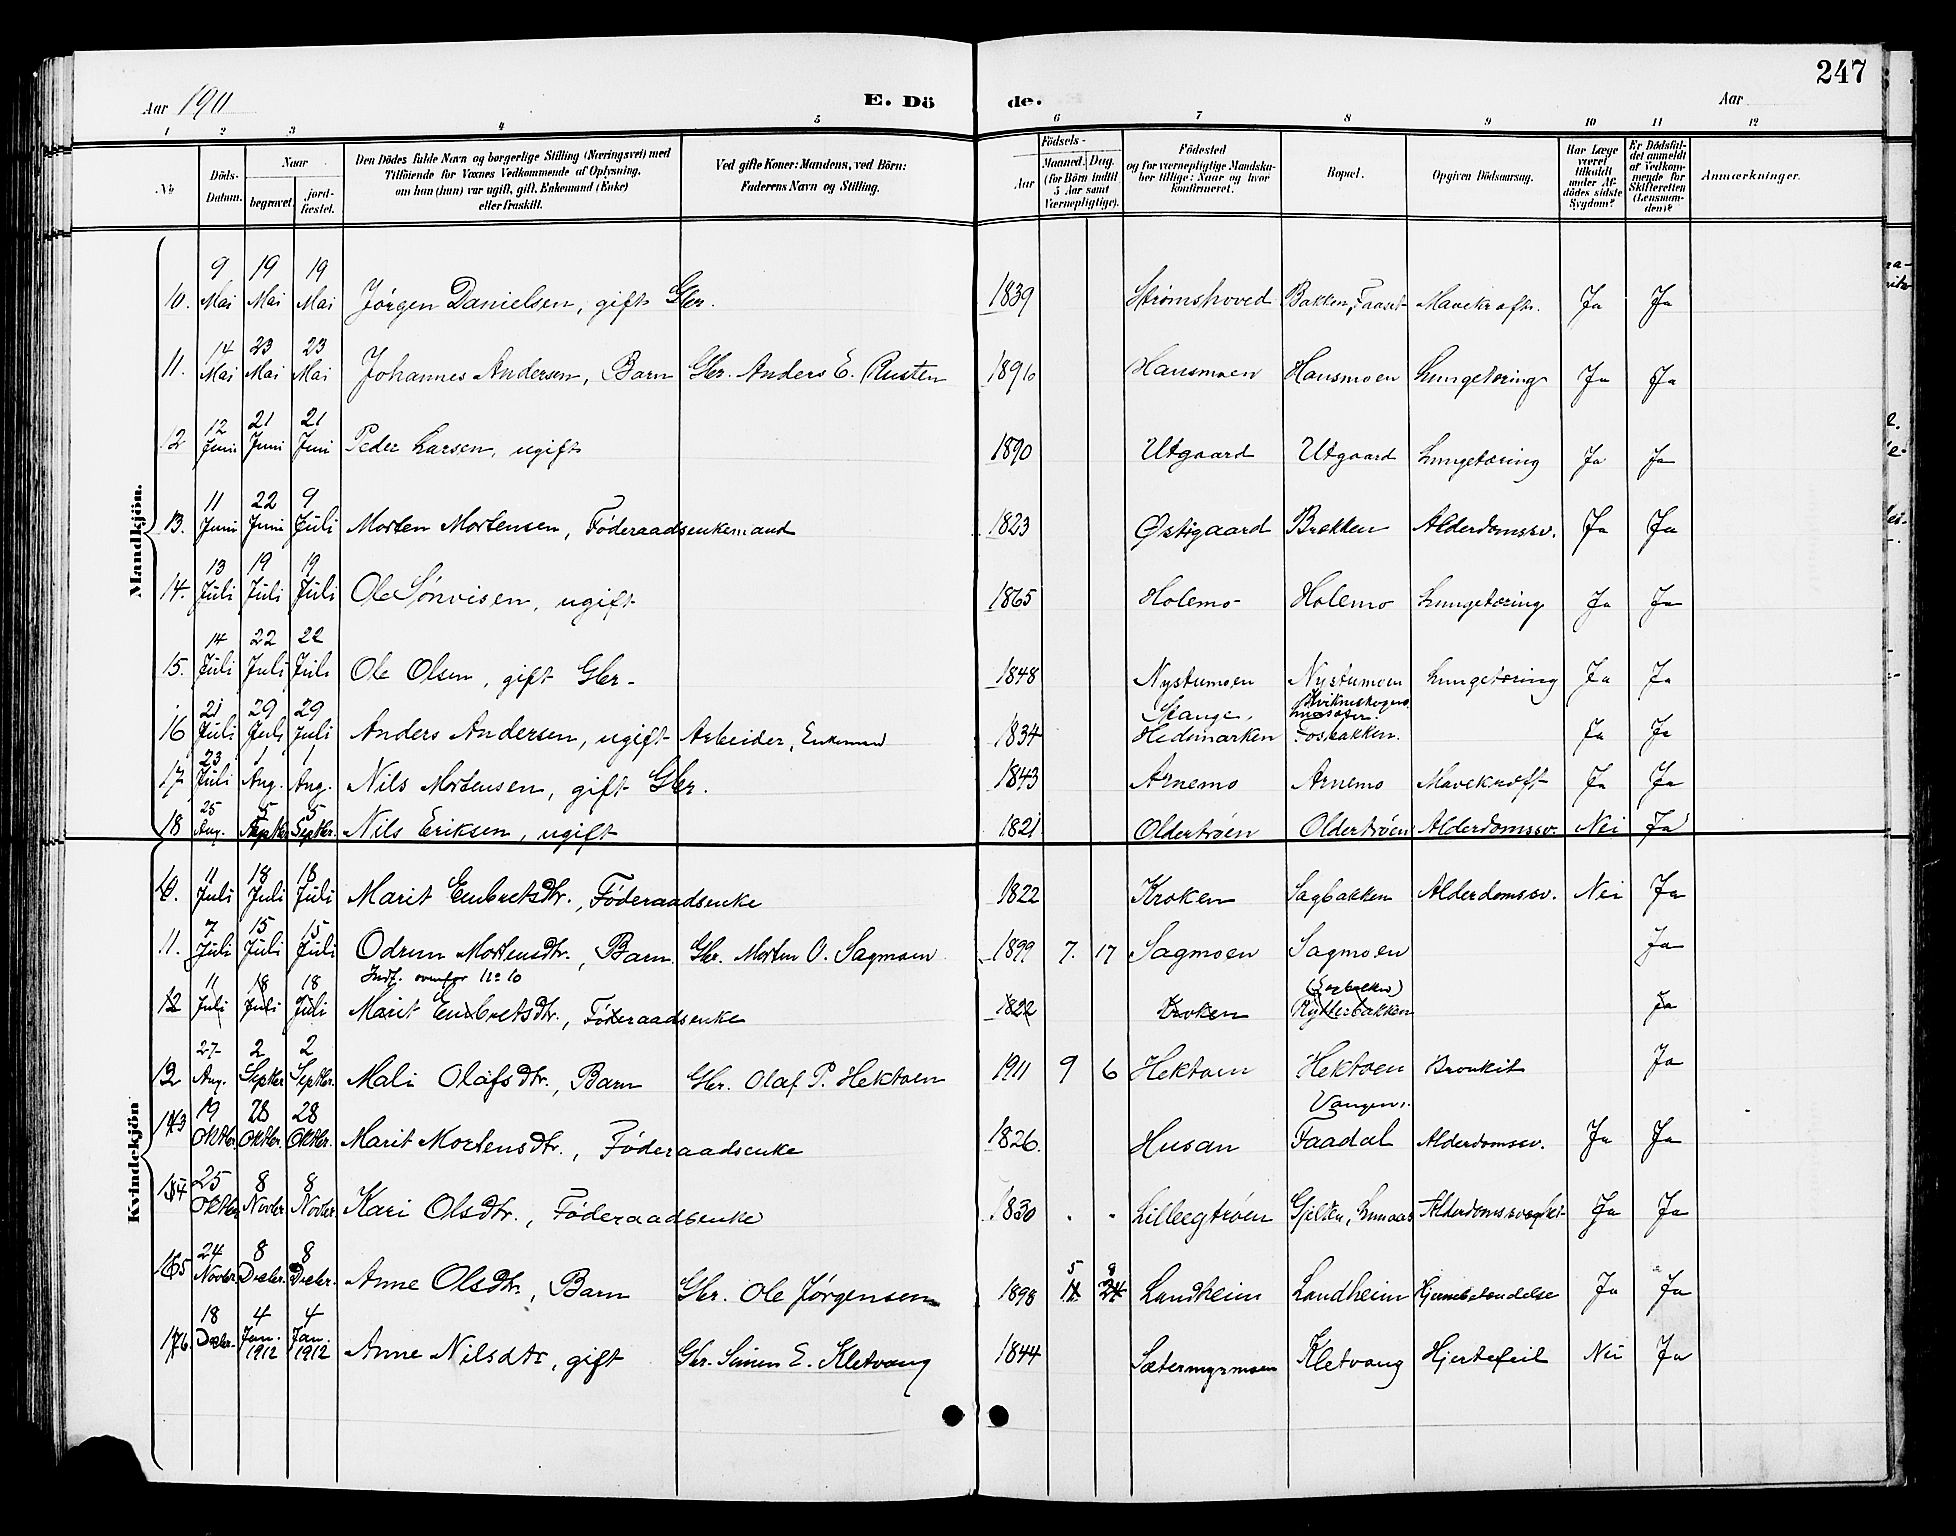 247
Aar 1911
E. Dö
de.
Aar
1 2 3 4 5 6 7 8 9 10 11 12
No
Döds-Datum.
Naar
begravet.
jord-fæstet.
Den Dödes fulde Navn og borgerlige Stilling (Næringsvei) med
Tilföiende for Voxnes Vedkommende af Oplysning,
om han (hun) var ugift, gift, Enkemand (Enke)
eller fraskilt.
Ved gifte Koner: Mandens, ved Börn:
Faderens Navn og Stilling.
Födsels-
Aar
Maaned. Dag.
(for Börn indtil
5 Aar samt
Værnepligtige).
Födested
og for værnepligtige Mandska-
ber tillige: Naar og hvor
konfirmeret.
Bopæl.
Opgiven Dödsaarsag.
Har Læge
været
tilkaldt
under Af-
dödes sidste
Sygdom?
Er Dödsfal-
det anmeldt
af Vedkom-
mende for
Skifteretten
(Lensman-
den)?
Anmærkninger.
Mandkjön.
10. 9 Mai 19 Mai 19 Mai Jørgen Danielsen, gift Gbr. 1839 Strømshoved Bakken, Faaset Mavekræft. Ja Ja
11. 14 Mai 23 Mai 23 Mai Johannes Andersen, Barn Gbr. Anders E. Rusten 1896 Hausmoen Hausmoen Lungetæring Ja Ja
12 12 Juni 21 Juni 21 Juni Peder Larsen, ugift 1890 Utgaard Utgaard Lungetæring Ja Ja
13. 11 Juni 22 Juni 9 Juli Morten Mortensen, Føderaadsenkemand 1823 Østigaard Brekken Alderdomssv. Ja Ja
14. 13 Juli 19 Juli 19 Juli Ole Sønvisen, ugift 1865 Holemo Holemo Lungetæring Ja Ja
15. 14 Juli 22 Juli 22 Juli Ole Olsen, gift Gbr. 1848 Nystumoen Nystumoen Lungetæring Ja Ja
16 21 Juli 29 Juli 29 Juli Anders Andersen, ugift Arbeider, Enkemand 1834 Stange, Hedemarken Fosbakken. Ja Ja
17. 23 Juli 1 Aug. 1 Aug. Nils Mortensen, gift Gbr. 1843 Arnemo Arnemo Mavekræft Ja Ja
18 25 Aug. 5 Septbr. 5 Septbr. Nils Eriksen, ugift 1821 Oldertrøen Oldertrøen Alderdomssv. Nei Ja
Kvindekjön
10. 11 Juli 18 Juli 18 Juli Marit Embretsdtr., Føderaadsenke 1822 Kroken Sagbakken Alderdomssv. Nei Ja
11. 7 Juli 15 Juli 15 Juli Odrun Mortensdtr., Barn Gbr. Morten O. Sagmoen 1899 7. 17 Sagmoen Sagmoen Ja
Indf. ovenfor No 10
12 11 Juli 18 Juli 18 Juli Marit Embretsdtr., Føderaadsenke 1822 Kroken (Sagbakken) Rytterbakken Ja
12 27 Aug. 2 Septbr 2 Septbr. Mali Olafsdtr., Barn Gbr. Olaf P. Hektoen 1911 9 6 Hektoen Hektoen Bronkit Ja
13 19 Oktbr. 28 Oktbr. 28 Oktbr. Marit Mortensdtr., Føderaadsenke 1826. Husan Vangen, Faadal Alderdomssv. Ja Ja
14 25 Oktbr 8 Novbr 8 Novbr Kari Olsdtr., Føderaadsenke 1830 Lilleegtrøen Gjelten, Lunaas Ja Ja
15 24 Novbr 8 Decbr. 8 Decbr. Anne Olsdtr., Barn Gbr. Ole Jørgensen 1898 5 8 Landheim Landheim Hjernebetændelse Ja Ja
16. 18 Decbr. 4 Jan. 1912 4 Jan. 1912 Anne Nilsdtr, gift Gbr. Simen E. Kletvang 1844 Sætermyrmoen Kletvang Hjertefeil Nei Ja